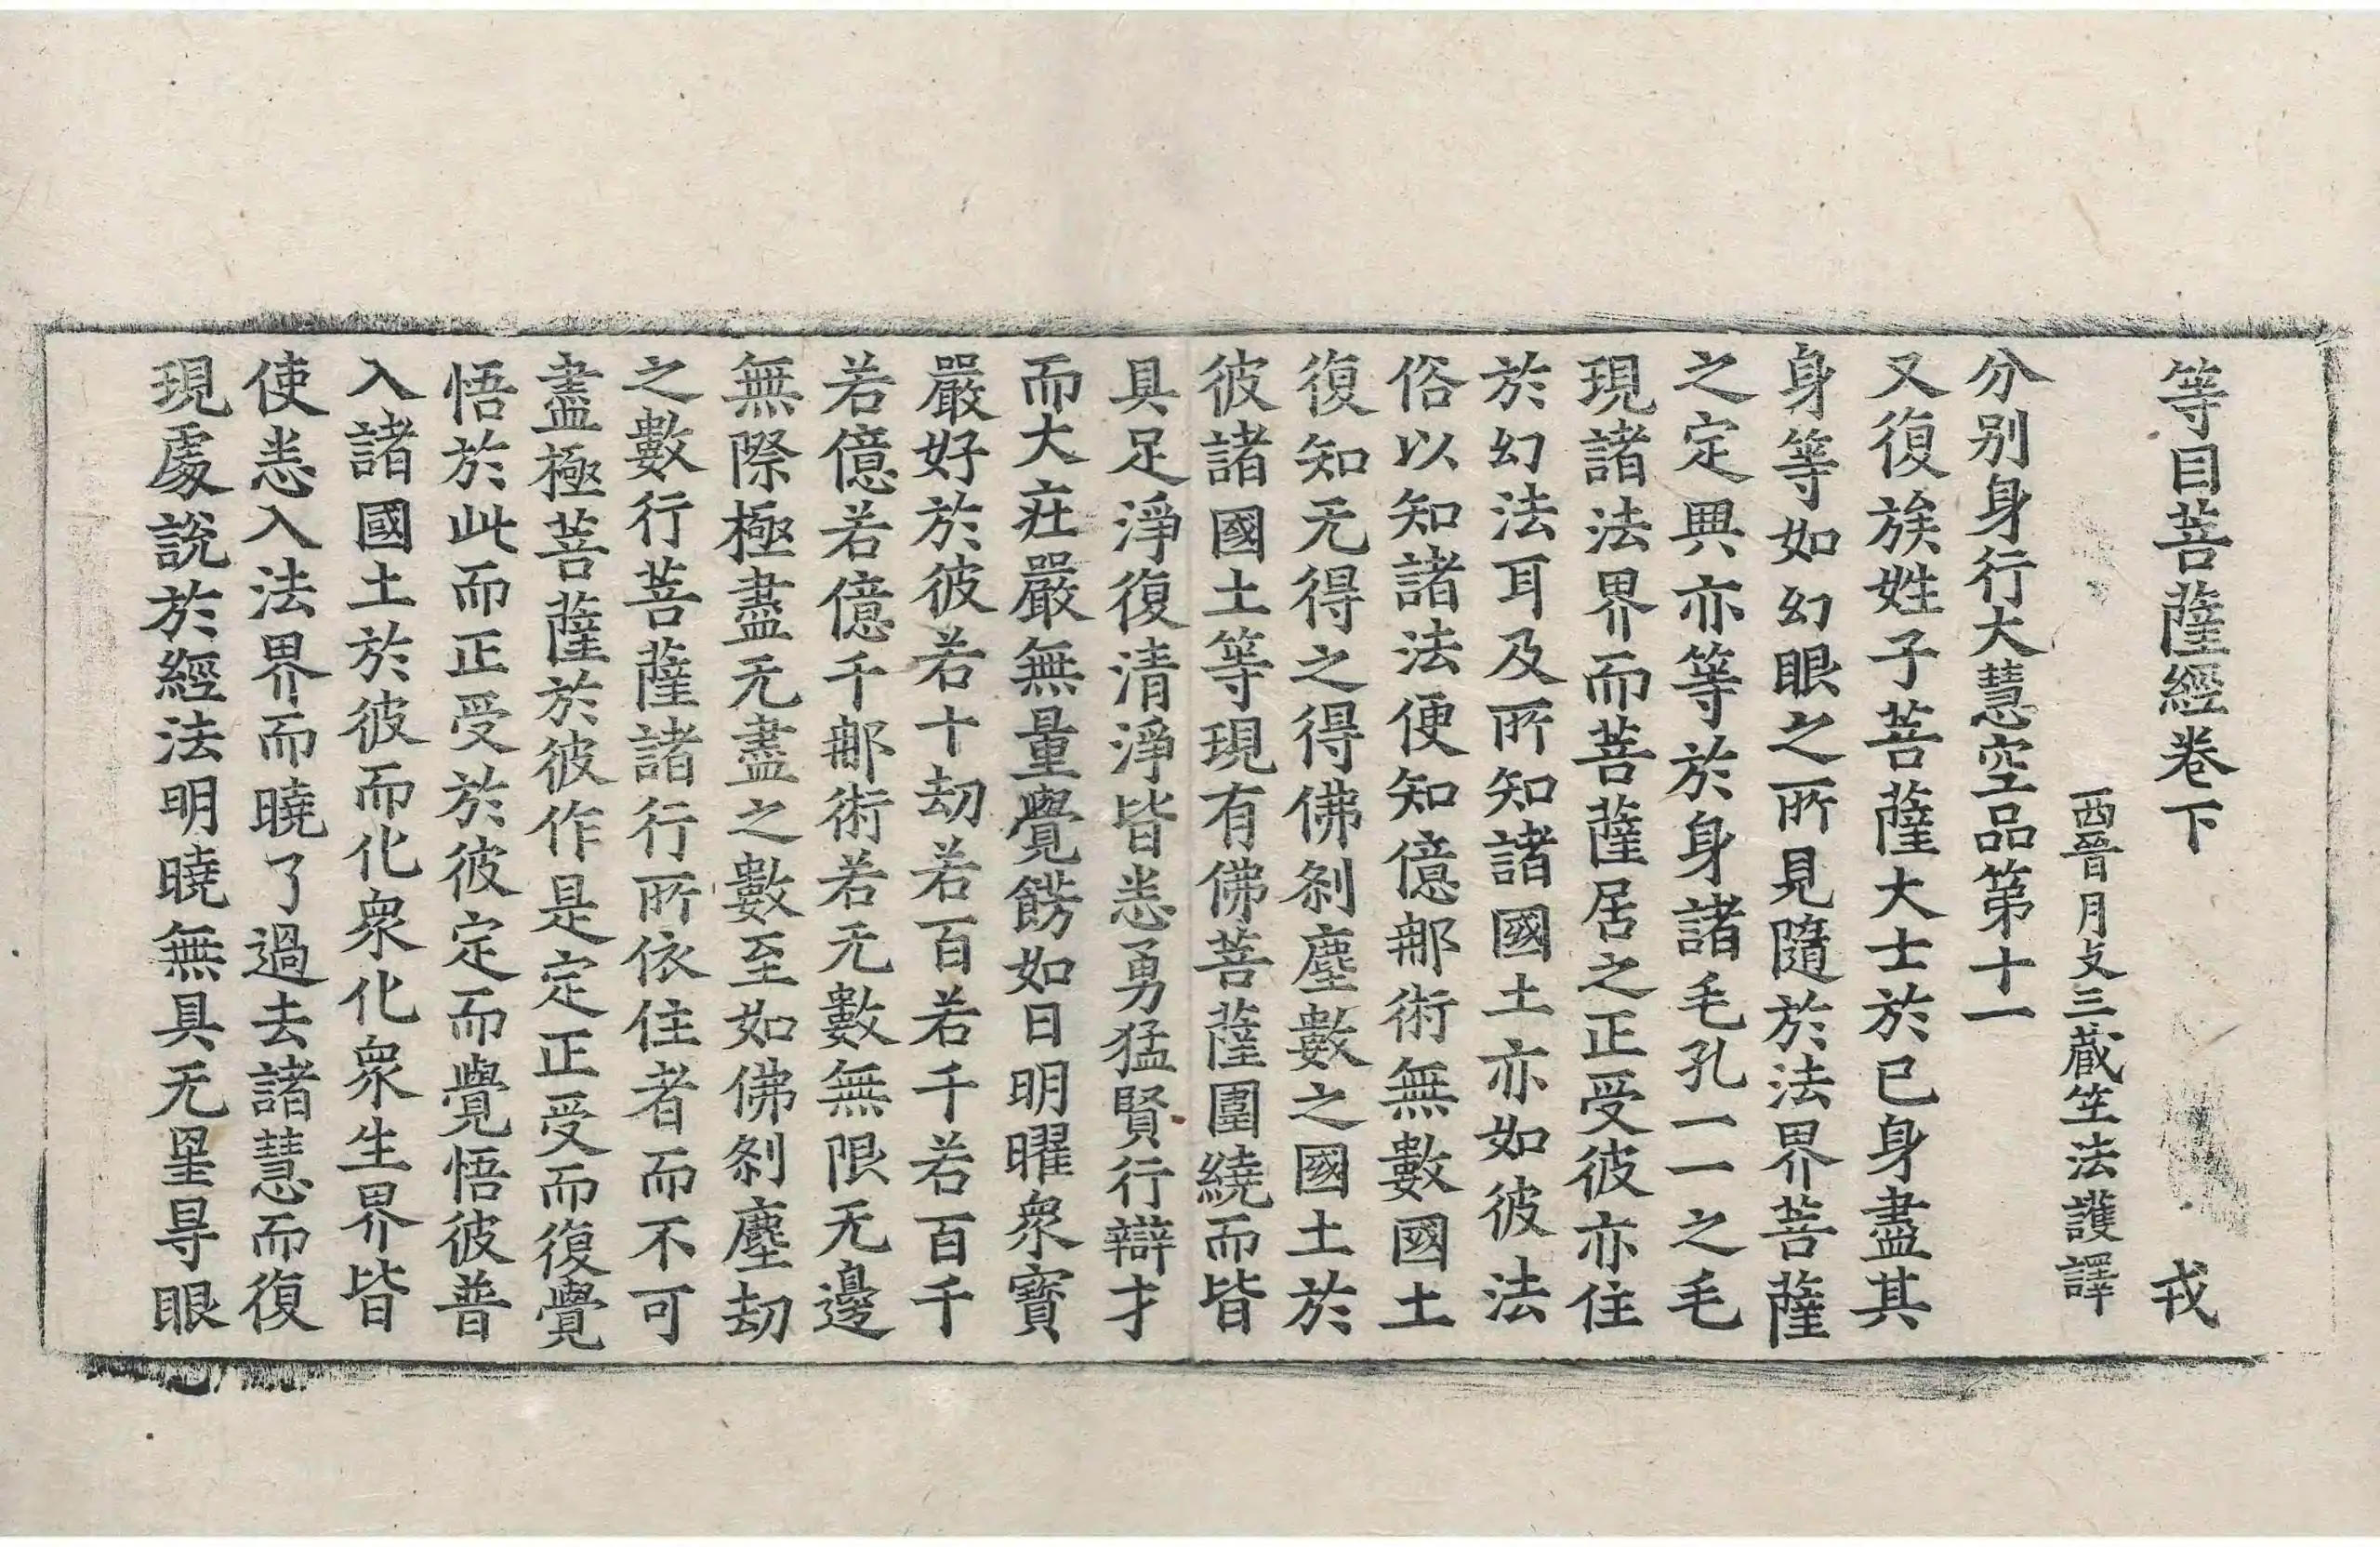 等目菩薩經卷下 戎
西晉月支三藏竺法護譯
分别身行大慧空品第十一
又復族姓子菩薩大士於已身盡其
身等如幻眼之所見隨於法界菩薩
之定興亦等於身諸毛孔一一之毛
現諸法界而菩薩居之正受彼亦住
於幻法耳及所知諸國土亦如彼法
俗以知諸法便知億那術無數國土
復知无得之得佛刹塵數之國土於
彼諸國土等現有佛菩薩圍繞而皆
具足淨復清淨皆悉勇猛賢行辯才
而大莊嚴無量覺餝如日明曜衆寶
嚴好於彼若十劫若百若千若百千
若億若億千那術若无數無限无邊
無際極盡无盡之數至如佛刹塵劫
之數行菩薩諸行所依住者而不可
盡極菩薩於彼作是定正受而復覺
悟於此而正受於彼定而覺悟彼普
入諸國土於彼而化衆化衆生界皆
使悉入法界而曉了過去諸慧而復
現處說於經法明曉無具无量㝵眼